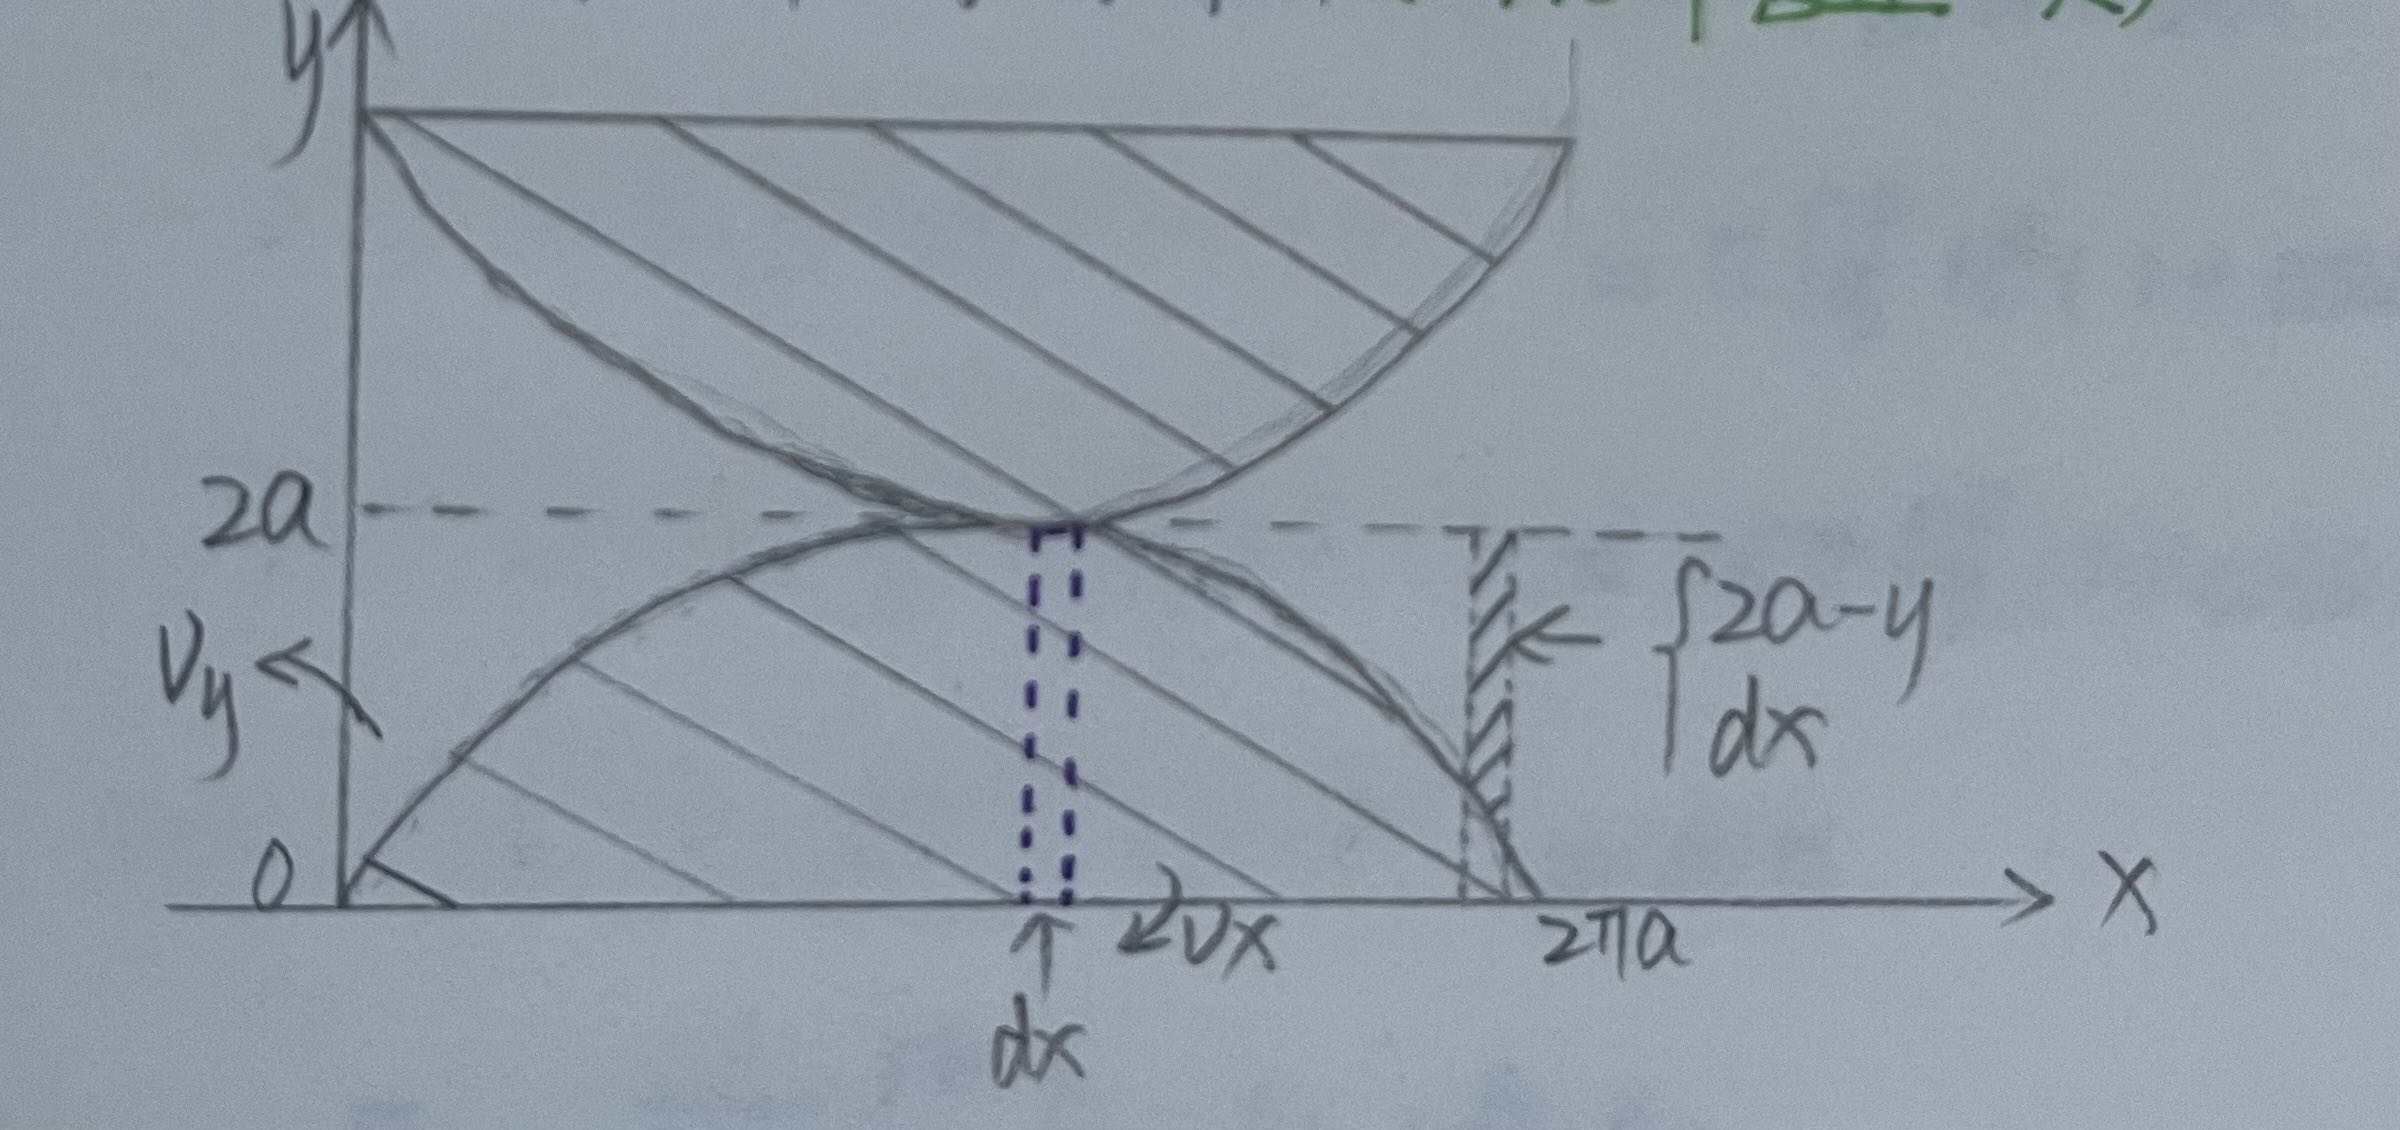 y
2a
Vy
2a-y
dx
0
Vx
2πa
X
dx